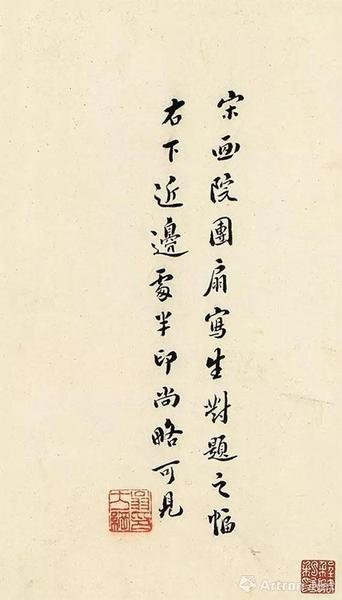 宋画院團扇寫生對題之幅
右下近邊處半印尚略可見
Artron